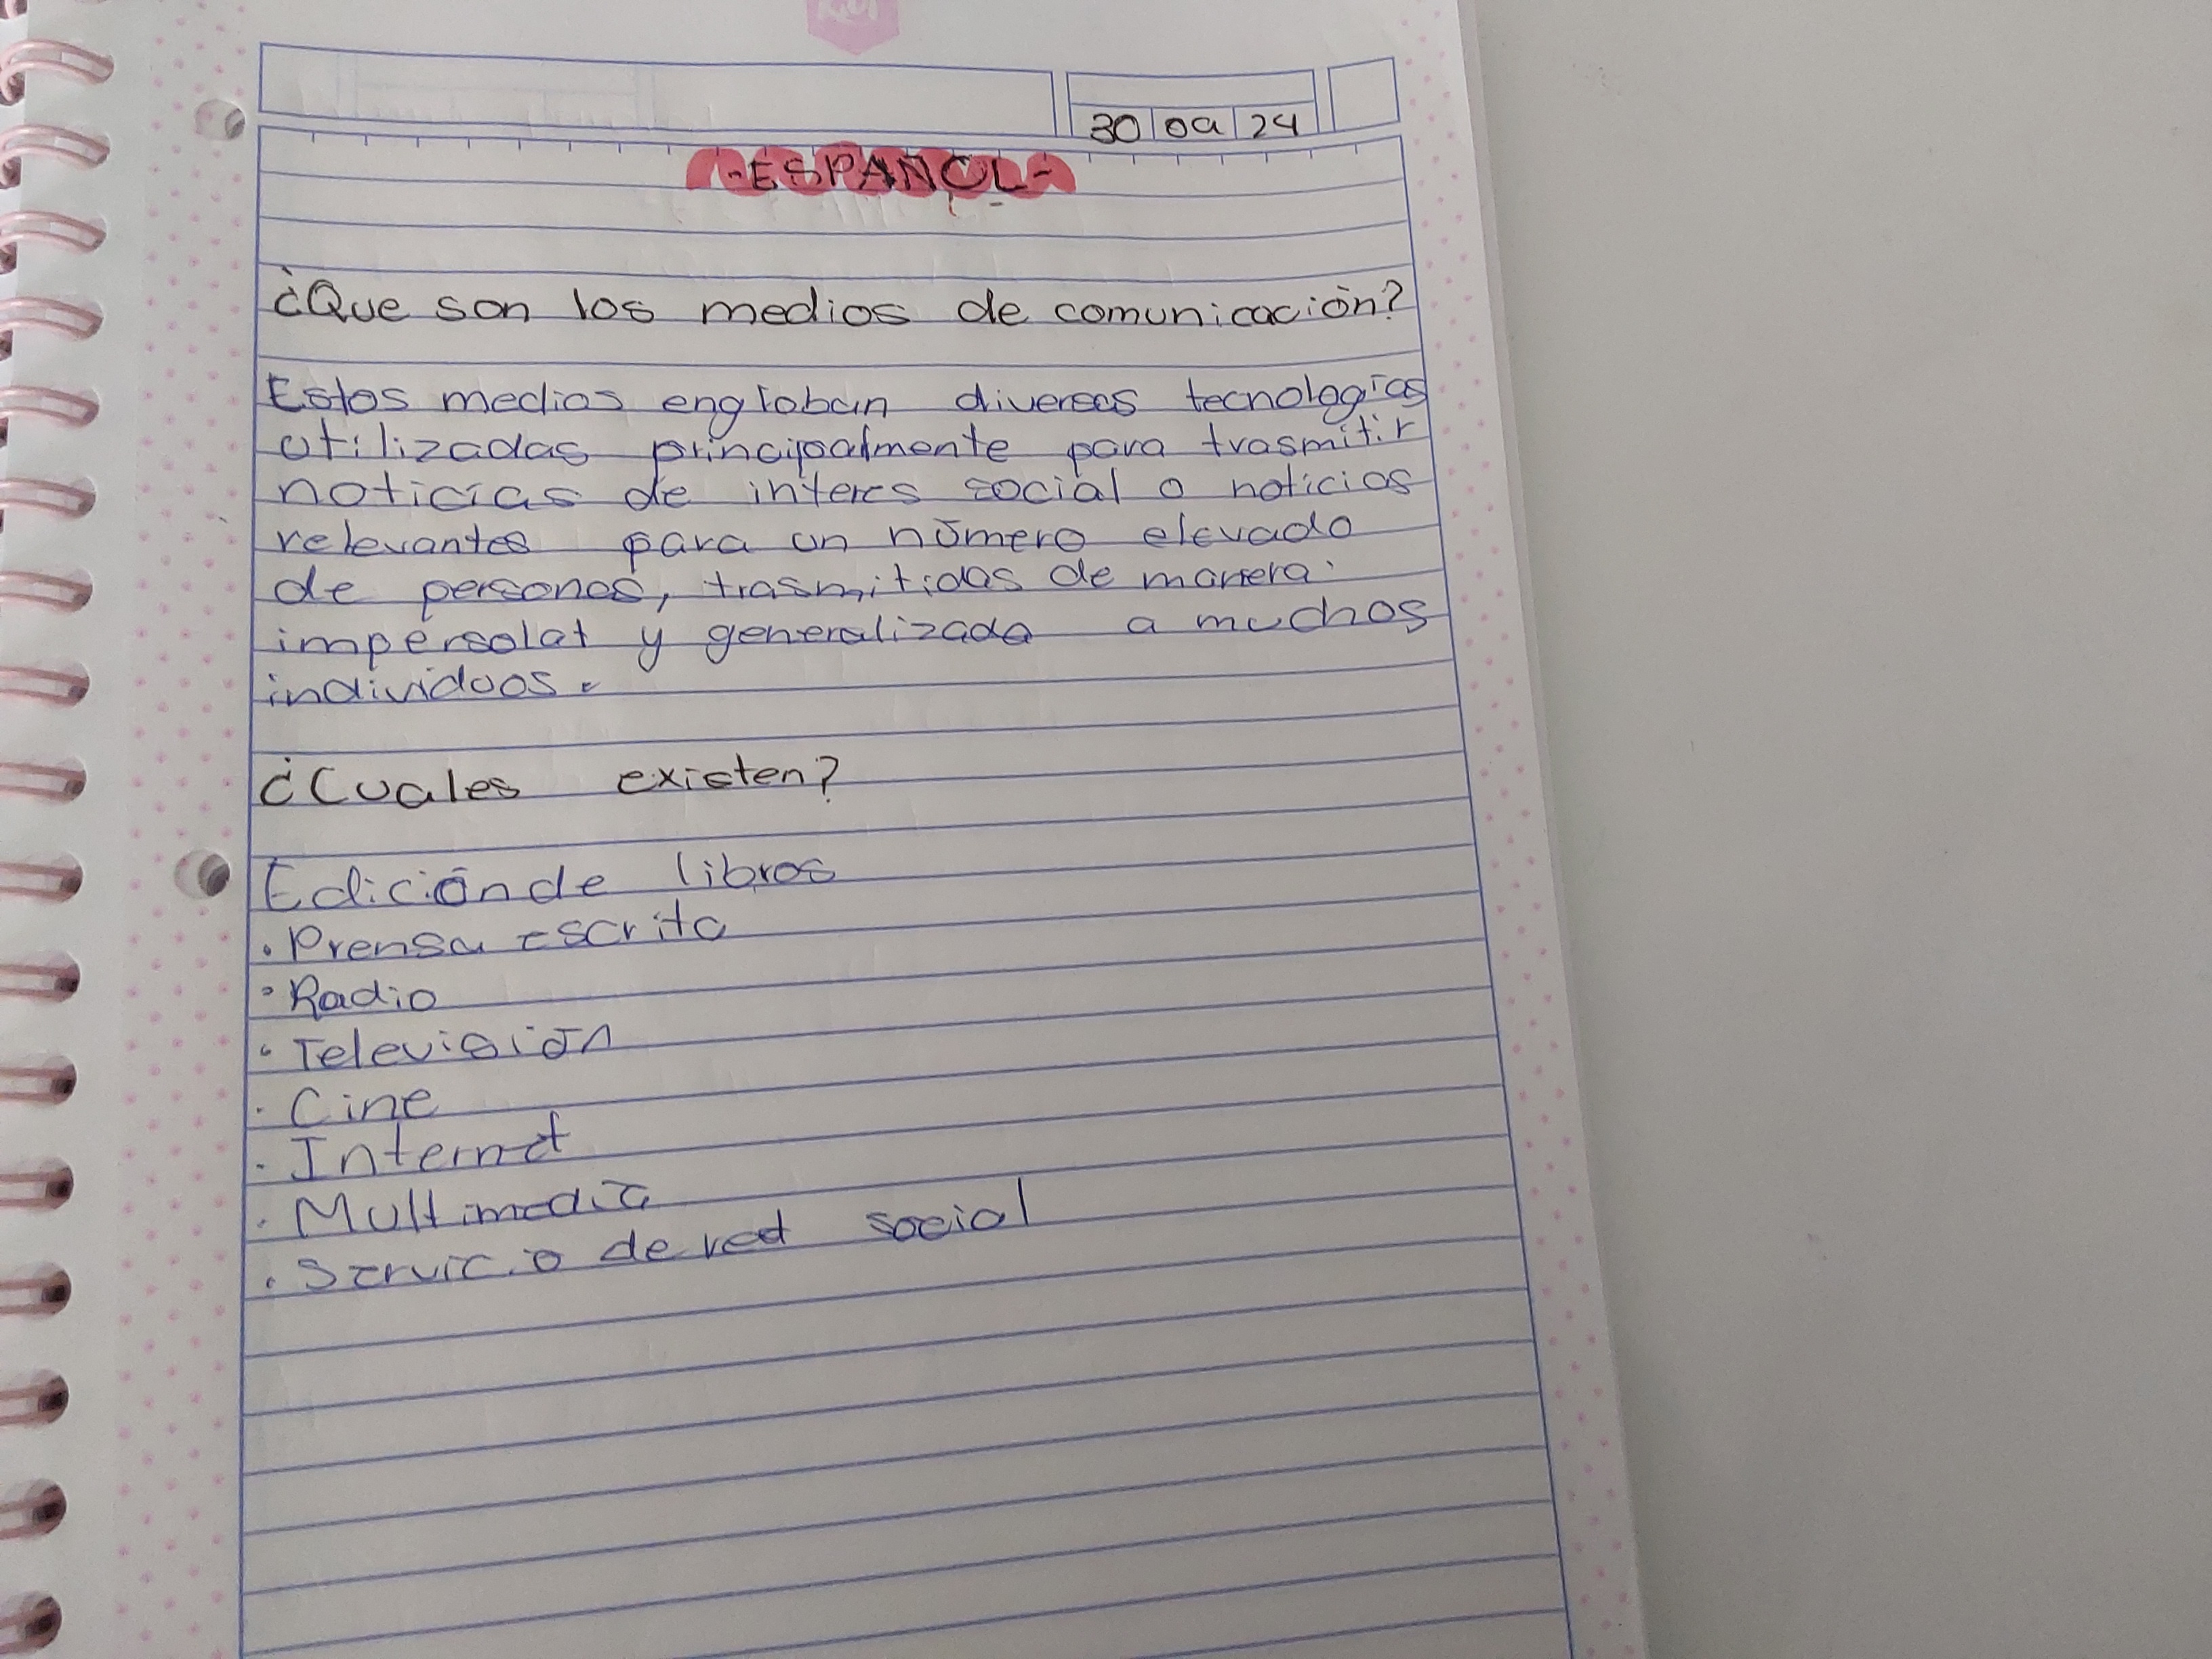 30 09 24
-ESPAÑOL-
¿Que son los medios de comunicación?
Estos medios engloban diversas tecnologías
utilizadas principalmente para trasmitir
noticias de interes social o noticias
relevantes para un número elevado
de personas, trasmitidas de manera
impersolat y generalizada a muchos
individuos.
¿Cuales existen?
Edición de libros
• Prensa escrita
• Radio
• Televisión
• Cine
• Internet
• Multimedia
• Servicio de red social